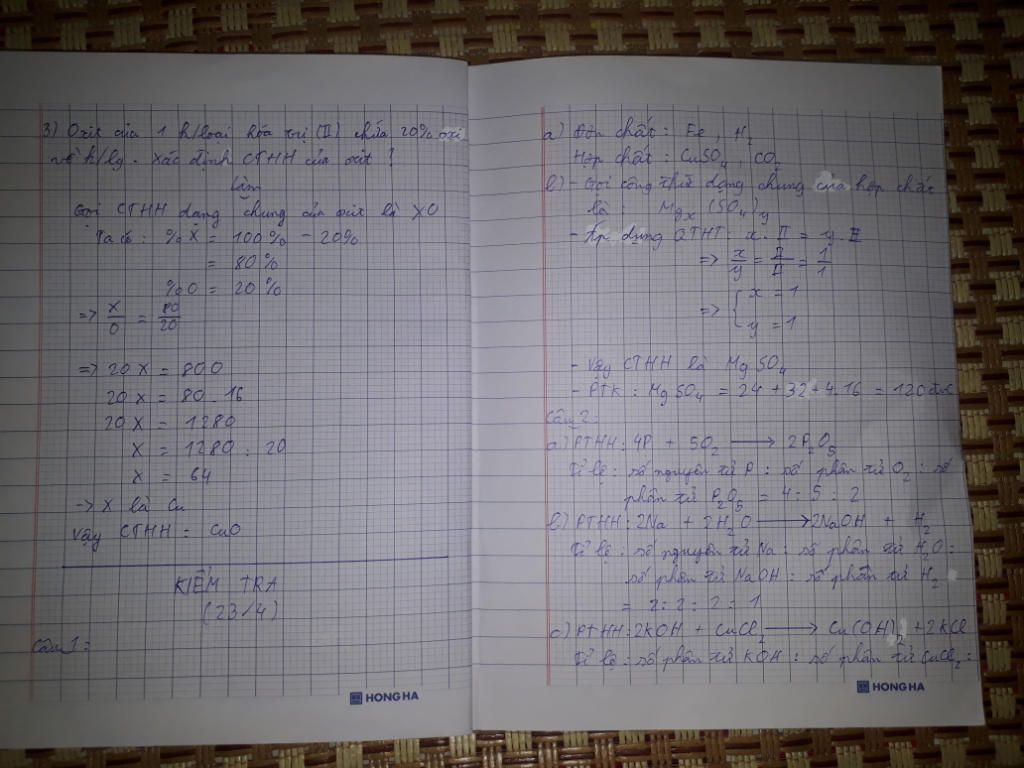 3) Oxit của 1 k/loại hóa trị (II) chứa 20% oxi
về k/lg. Xác định CTHH của oxit ?
Làm
Gọi CTHH dạng chung của oxit là XO
Ta có : %X = 100% - 20%
= 80%
%O = 20%
=> X/O = 80/20
=> 20X = 80O
20X = 80.16
20X = 1280
X = 1280 : 20
X = 64
-> X là Cu
Vậy CTHH : CuO
KIỂM TRA
(23/4)
Câu 1 :
HONG HA
a) Đơn chất : Fe , H2
Hợp chất : CuSO4 , CO2
b) - Gọi công thức dạng chung của hợp chất
là : Mgx (SO4)y
- Áp dụng QTHT : x. II = y. II
=> x/y = II/II = 1/1
=> { x = 1
y = 1
- Vậy CTHH là MgSO4
- PTK : MgSO4 = 24 + 32 + 4.16 = 120 đvC
Câu 2 :
a) PTHH : 4P + 5O2 -> 2P2O5
Tỉ lệ : số nguyên tử P : số phân tử O2 : số
phân tử P2O5 = 4 : 5 : 2
b) PTHH : 2Na + 2H2O -> 2NaOH + H2
Tỉ lệ : số nguyên tử Na : số phân tử H2O :
số phân tử NaOH : số phân tử H2
= 2 : 2 : 2 : 1
c) PTHH : 2KOH + CuCl2 -> Cu(OH)2 + 2KCl
Tỉ lệ : số phân tử KOH : số phân tử CuCl2 :
HONG HA